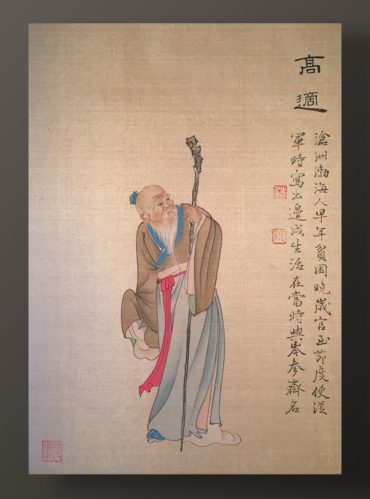 高適
滄洲渤海人早年貧困晚歲官至節度使從
軍時寫出邊戍生活在當時與岑參齊名